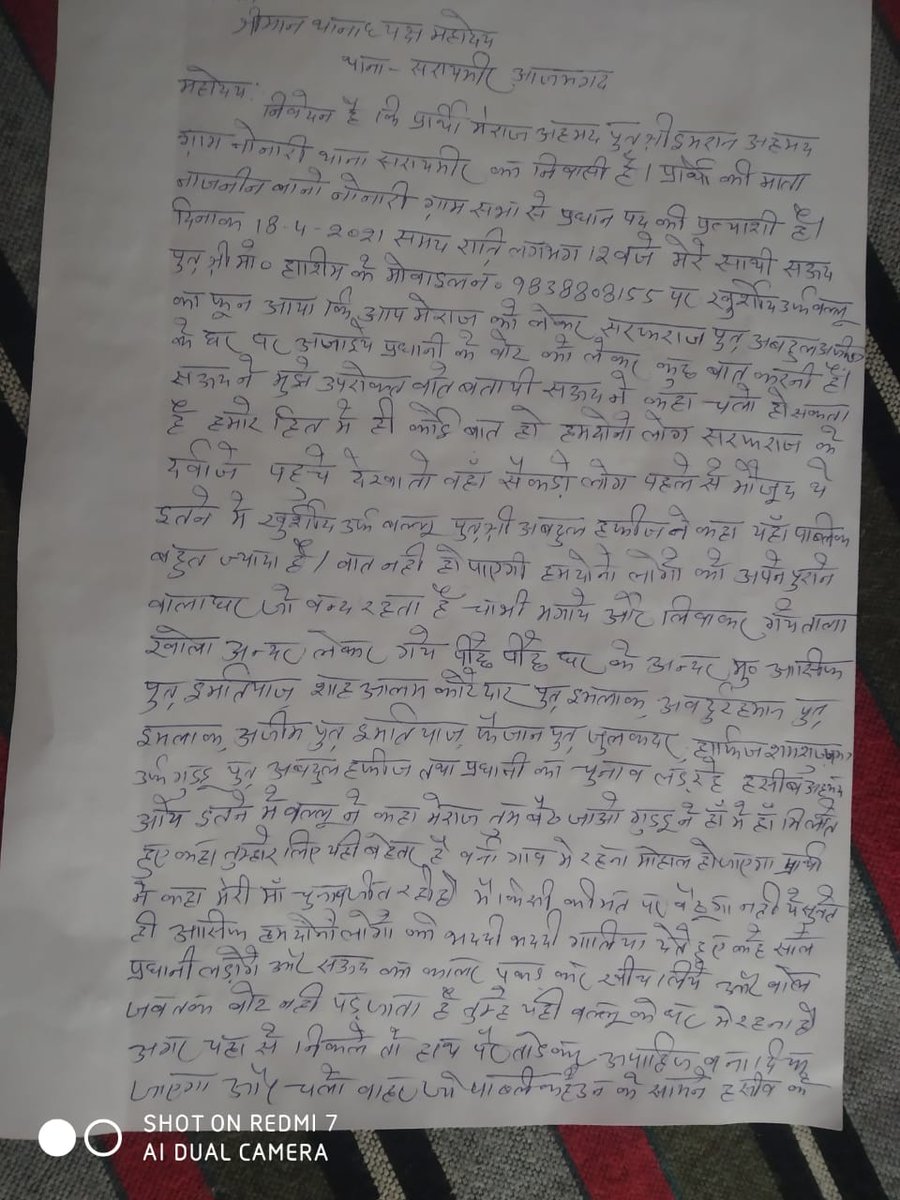 श्रीमान थानाध्यक्ष महोदय
थाना - सरायमीर आजमगढ
महोदय:
निवेदन है कि प्रार्थी मेराज अहमद पुत्र श्री इमरान अहमद
ग्राम नोनारी थाना सरायमीर का निवासी है। प्रार्थी की माता
नाजनीन बानो नोनारी ग्राम सभा से प्रधान पद की प्रत्याशी है।
दिनांक 18-4-2021 समय रात्रि लगभग 12 बजे मेरे साथी सऊद
पुत्र श्री मो० हाशिम के मोबाइल नं० 9838808155 पर खुर्शीद उर्फ बल्लू
का फून आया कि आप मेराज को लेकर सरफराज पुत्र अबदुल अजीज
के घर पर अजाइये प्रधानी के वोट को लेकर कुछ बात करनी है।
सऊद ने मुझे उपरोक्त बात बतायी सऊद ने कहा चलो हो सकता
है हमारे हित मे ही कोई बात हो हमदोनो लोग सरफराज के
दर्वाजे पहुचे देखा तो वहाँ सैकड़ो लोग पहले से मौजूद थे
इतने मे खुर्शीद उर्फ बल्लू पुत्र श्री अबदुल हफीज ने कहा यहाँ पाब्लिक
बहुत ज्यादा है। बात नही हो पाएगी हमदोनो लोगो को अपने पुराने
वाला घर जो बन्द रहता है चाभी मगाये और लिवाकर गये ताला
खोला अन्दर लेकर गये पीछे पीछे घर के अन्दर मु० आसिफ
पुत्र इम्तियाज, शाह आलम कोटेदार पुत्र इमलाक, अबदुर्रहमान पुत्र
इमलाक, अजीम पुत्र इम्तियाज, फैजान पुत्र जुलकदर, हाफिज
उर्फ गुड्डू पुत्र अबदुल हफीज तथा प्रधानी का चुनाव लड़ रहे हसीब अहमद
आये इतने मे बल्लू ने कहा मेराज तुम बैठ जाओ गुड्डू ने हाँ मे हाँ मिलाते
हुए कहा तुम्हारे लिए यही बेहतर है वर्ना गाव मे रहना मोहाल हो जाएगा प्रार्थी
ने कहा मेरी माँ चुनाव जीत रही है मै किसी कीमत पर बैठूगा नही ये सुनते
ही आसिफ हमदोनो लोगो को भददी भददी गालिया देते हुए कहे साले
प्रधानी लड़ोगे और सऊद का कालर पकड़ कर खीच लिये और बोले
जब तक वोट नही पड़ जाता है तुम्हे यही बल्लू के घर मे रहना है
अगर यहा से निकले तो हाथ पैर तोड कर अपाहिज बना दिया
जाएगा और चलो बाहर जो पाब्लिक के सामने हसीब के
SHOT ON REDMI 7
AI DUAL CAMERA